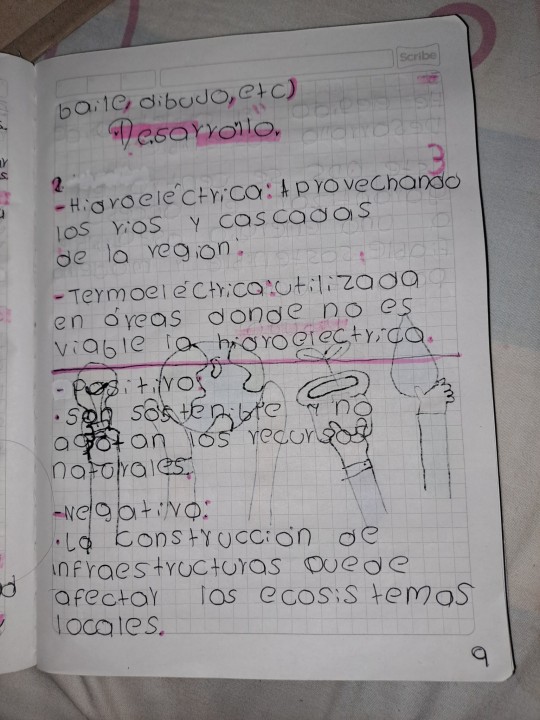 Scribe
baile, dibujo, etc)
Desarrollo.
3
2.
-Hidroeléctrica: Aprovechando
los rios y cascadas
de la region.
-Termoeléctrica: utilizada
en áreas donde no es
viable la hidroeléctrica.
-Positivo:
•son sostenible y no
agotan los recursos
naturales.
-Negativo:
•La construcción de
infraestructuras puede
afectar los ecosistemas
locales.
9